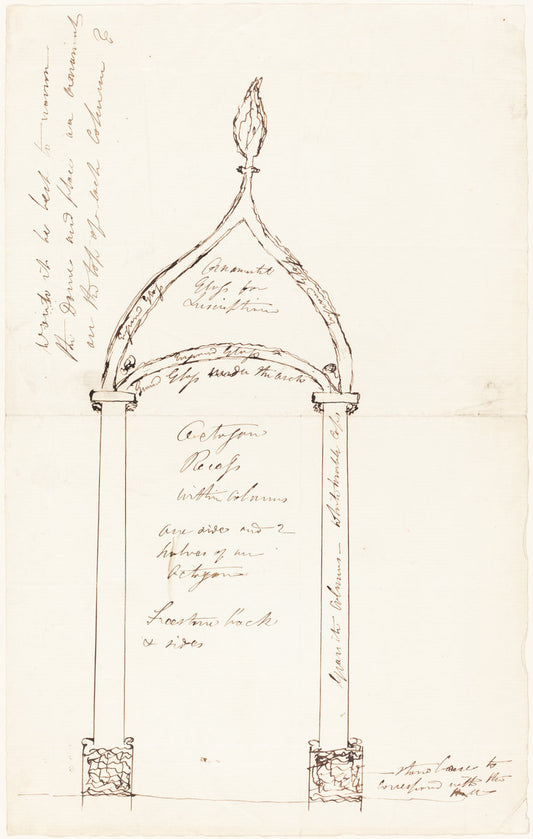 Would it be best to narrow
the Dome and place an ornament
on the top of each Column ?
Ornamented
Glass for
Inscription
Ground Glass
Ground Glass
Ground Glass under the arch
Octagon
Recess
within columns
one side and 2
halves of an
Octagon
Freestone back
& sides
Granite Columns — White marble Caps
stone base to
correspond with the